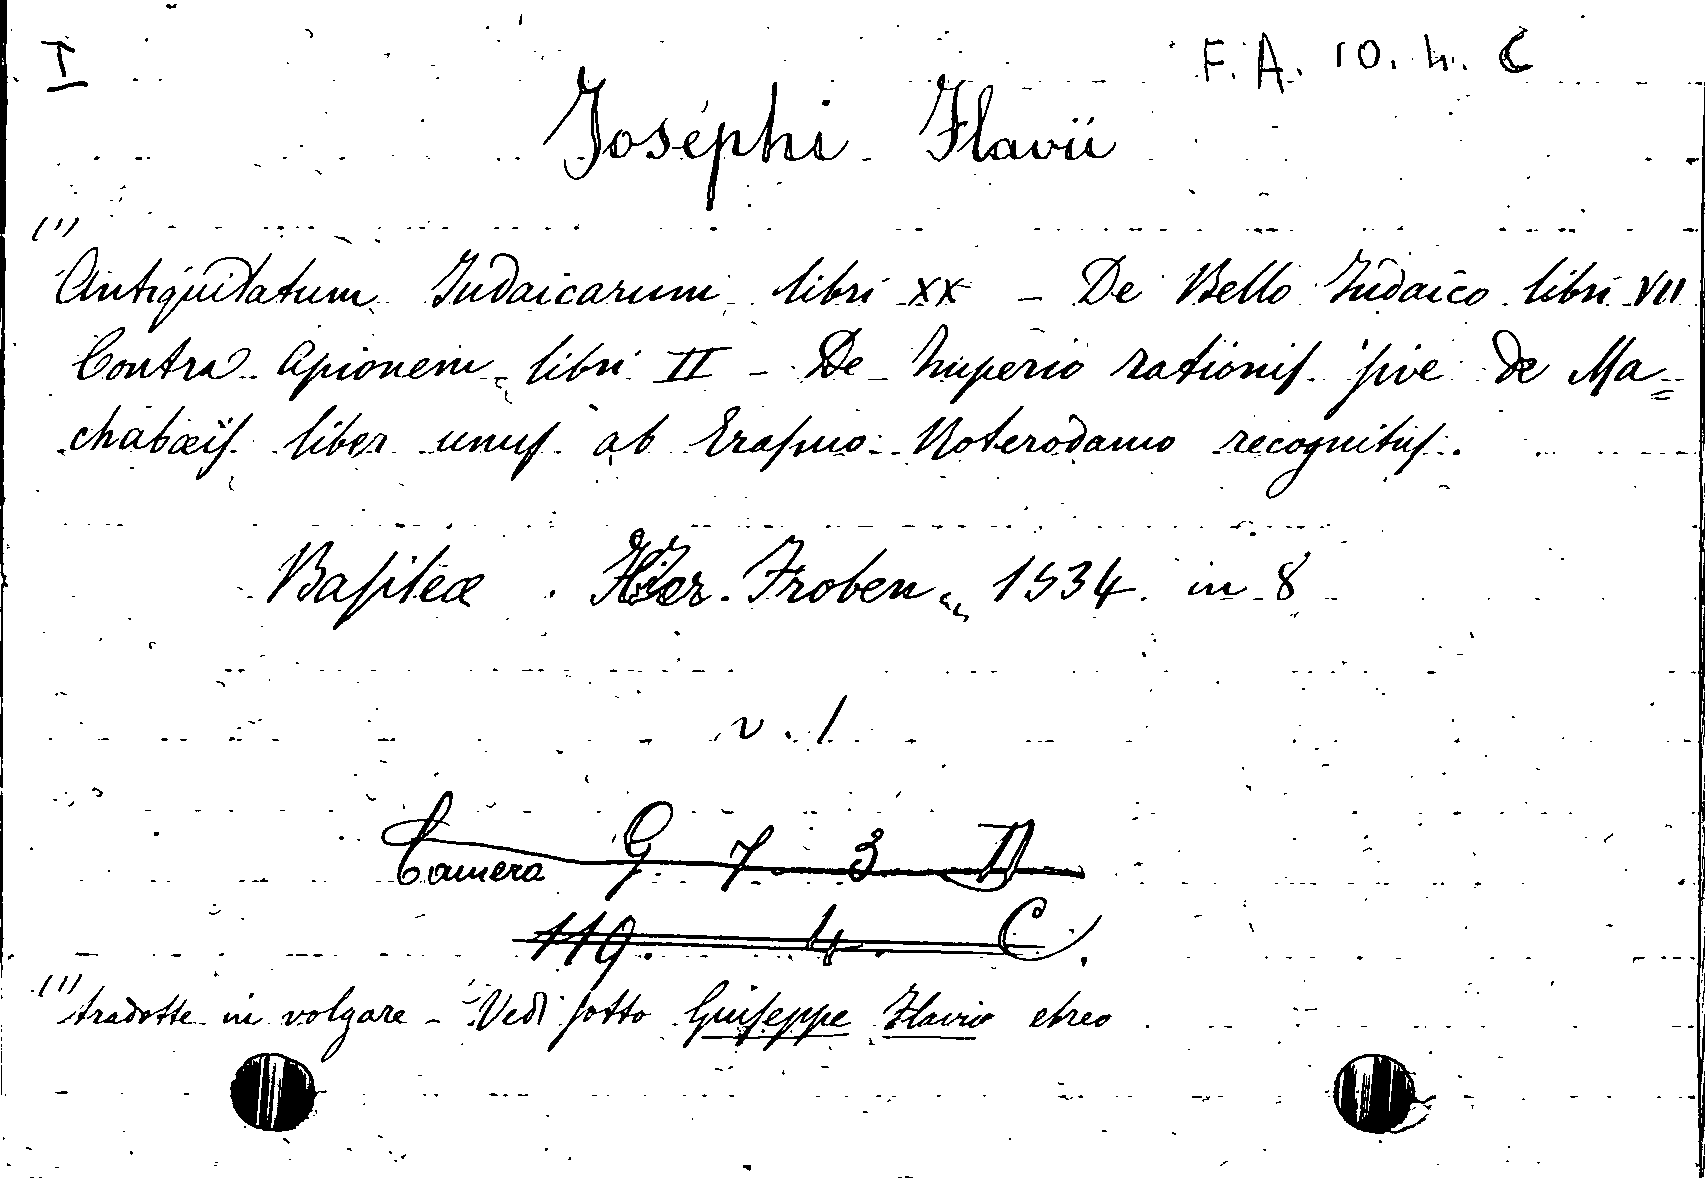 I
F. A. 10. 4. C
Josephi Flavii
(1)
Antiquitatum Judaicarum libri XX - De Bello Judaico libri VII
Contra Apionem libri II - De Imperio rationis sive de Ma=
chabæis liber unus ab Erasmo Roterodamo recognitus.
Basileæ. Hier. Froben 1534 in 8
v. 1
Camera G 7 3 D
119. 4. C.
(1) tradotte in volgare - Vedi sotto Giuseppe Flavio ebreo